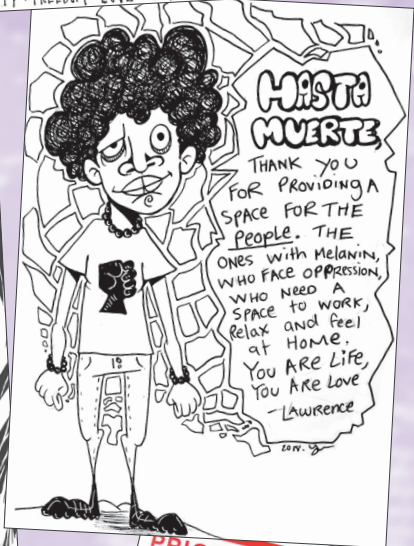 HASTA
MUERTE,
THANK YOU
FOR PROVIDING A
SPACE FOR THE
PEOPLE. THE
ONES WITH MELANIN,
WHO FACE OPPRESSION,
WHO NEED A
SPACE TO WORK,
Relax and feel
at HOME.
YOU ARE LIFE,
YOU ARE LOVE
-LAWRENCE